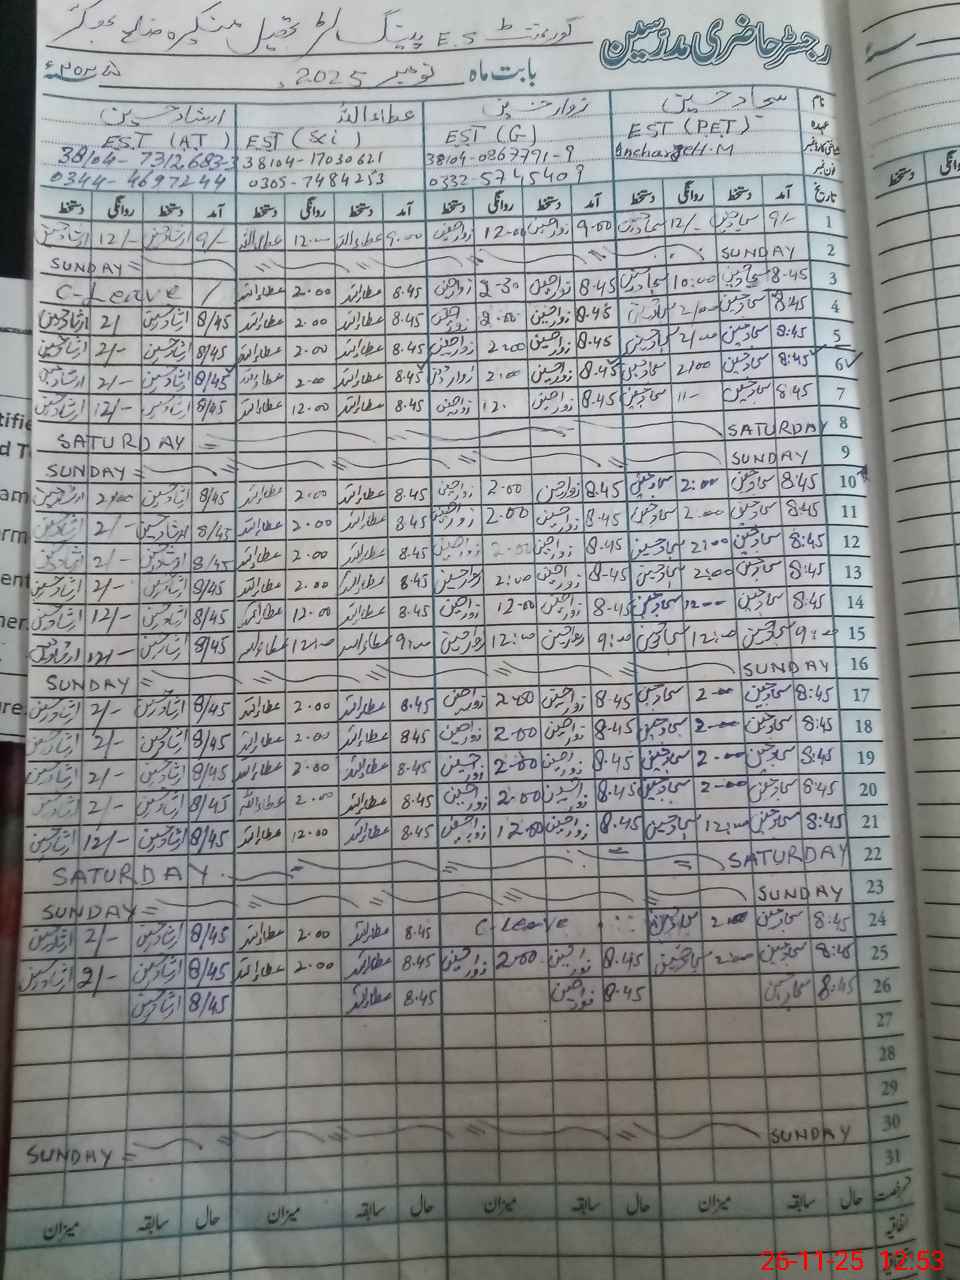 رجسٹر حاضری مدرسین
گورنمنٹ E.S
بابت ماہ نومبر 2025ء
نام سجاد حسین زوار حسین عطاء اللہ ارشاد حسین
عہدہ EST (P.E.T) EST (G) EST (Sci) EST (A.T)
Incharge H.M 38104-0367791-9 38104-17030621 38104-7312683-3
فون نمبر 0332-5745409 0305-7484253 0344-4697244
تاریخ آمد دستخط روانگی دستخط آمد دستخط روانگی دستخط آمد دستخط روانگی دستخط آمد دستخط روانگی دستخط
1 9/- سجاد حسین 12/- سجاد حسین 9.00 زوار حسین 12.00 زوار حسین 9.00 عطاء اللہ 12.00 عطاء اللہ 9/- ارشاد حسین 12/- ارشاد حسین
2 SUNDAY SUNDAY
3 8.45 سجاد حسین 10:00 سجاد حسین 8.45 زوار حسین 2-30 زوار حسین 8.45 عطاء اللہ 2.00 عطاء اللہ C-Leave
4 8:45 سجاد حسین 2/00 سجاد حسین 8.45 زوار حسین 2.00 زوار حسین 8.45 عطاء اللہ 2.00 عطاء اللہ 8/45 ارشاد حسین 2/ ارشاد حسین
5 8:45 سجاد حسین 2/00 سجاد حسین 8.45 زوار حسین 2:00 زوار حسین 8.45 عطاء اللہ 2.00 عطاء اللہ 8/45 ارشاد حسین 2/- ارشاد حسین
6 8:45 سجاد حسین 2/00 سجاد حسین 8.45 زوار حسین 2:00 زوار حسین 8.45 عطاء اللہ 2.00 عطاء اللہ 8/45 ارشاد حسین 2/- ارشاد حسین
7 8:45 سجاد حسین سجاد حسین 8.45 زوار حسین 12. زوار حسین 8.45 عطاء اللہ 12.00 عطاء اللہ 8/45 ارشاد حسین 12/- ارشاد حسین
8 SATURDAY SATURDAY
9 SUNDAY SUNDAY
10 8:45 سجاد حسین 2:00 سجاد حسین 8.45 زوار حسین 2.00 زوار حسین 8.45 عطاء اللہ 2.00 عطاء اللہ 8/45 ارشاد حسین 2/00 ارشاد حسین
11 8:45 سجاد حسین 2:00 سجاد حسین 8.45 زوار حسین 2.00 زوار حسین 8.45 عطاء اللہ 2.00 عطاء اللہ 8/45 ارشاد حسین 2/- ارشاد حسین
12 8:45 سجاد حسین 2:00 سجاد حسین 8.45 زوار حسین 2.00 زوار حسین 8.45 عطاء اللہ 2.00 عطاء اللہ 8/45 ارشاد حسین 2/- ارشاد حسین
13 8:45 سجاد حسین 2:00 سجاد حسین 8-45 زوار حسین 2:00 زوار حسین 8.45 عطاء اللہ 2.00 عطاء اللہ 8/45 ارشاد حسین 2/- ارشاد حسین
14 8:45 سجاد حسین 12:00 سجاد حسین 8-45 زوار حسین 12-00 زوار حسین 8.45 عطاء اللہ 12.00 عطاء اللہ 8/45 ارشاد حسین 12/- ارشاد حسین
15 9:00 سجاد حسین 12:00 سجاد حسین 9:00 زوار حسین 12:00 زوار حسین 9:00 عطاء اللہ 12:00 عطاء اللہ 8/45 ارشاد حسین 12/- ارشاد حسین
16 SUNDAY SUNDAY
17 8:45 سجاد حسین 2-00 سجاد حسین 8.45 زوار حسین 2.00 زوار حسین 8.45 عطاء اللہ 2.00 عطاء اللہ 8/45 ارشاد حسین 2/- ارشاد حسین
18 8:45 سجاد حسین 2-00 سجاد حسین 8.45 زوار حسین 2.00 زوار حسین 845 عطاء اللہ 2.00 عطاء اللہ 8/45 ارشاد حسین 2/- ارشاد حسین
19 8:45 سجاد حسین 2-00 سجاد حسین 8.45 زوار حسین 2-00 زوار حسین 8.45 عطاء اللہ 2.00 عطاء اللہ 8/45 ارشاد حسین 2/- ارشاد حسین
20 8:45 سجاد حسین 2-00 سجاد حسین 8.45 زوار حسین 2.00 زوار حسین 8.45 عطاء اللہ 2.00 عطاء اللہ 8/45 ارشاد حسین 2/- ارشاد حسین
21 8:45 سجاد حسین 12:00 سجاد حسین 8.45 زوار حسین 12.00 زوار حسین 8.45 عطاء اللہ 12.00 عطاء اللہ 8/45 ارشاد حسین 12/- ارشاد حسین
22 SATURDAY SATURDAY
23 SUNDAY SUNDAY
24 8:45 سجاد حسین 2:00 سجاد حسین C-Leave 8.45 عطاء اللہ 2.00 عطاء اللہ 8/45 ارشاد حسین 2/- ارشاد حسین
25 8:45 سجاد حسین 2:00 سجاد حسین 8.45 زوار حسین 2.00 زوار حسین 8.45 عطاء اللہ 2.00 عطاء اللہ 8/45 ارشاد حسین 2/- ارشاد حسین
26 8:45 سجاد حسین 8.45 زوار حسین 8.45 عطاء اللہ 8/45 ارشاد حسین
27
28
29
30 SUNDAY SUNDAY
31
رخصت حال سابقہ میزان حال سابقہ میزان حال سابقہ میزان حال سابقہ میزان
اتفاقیہ
26-11-25 12:53